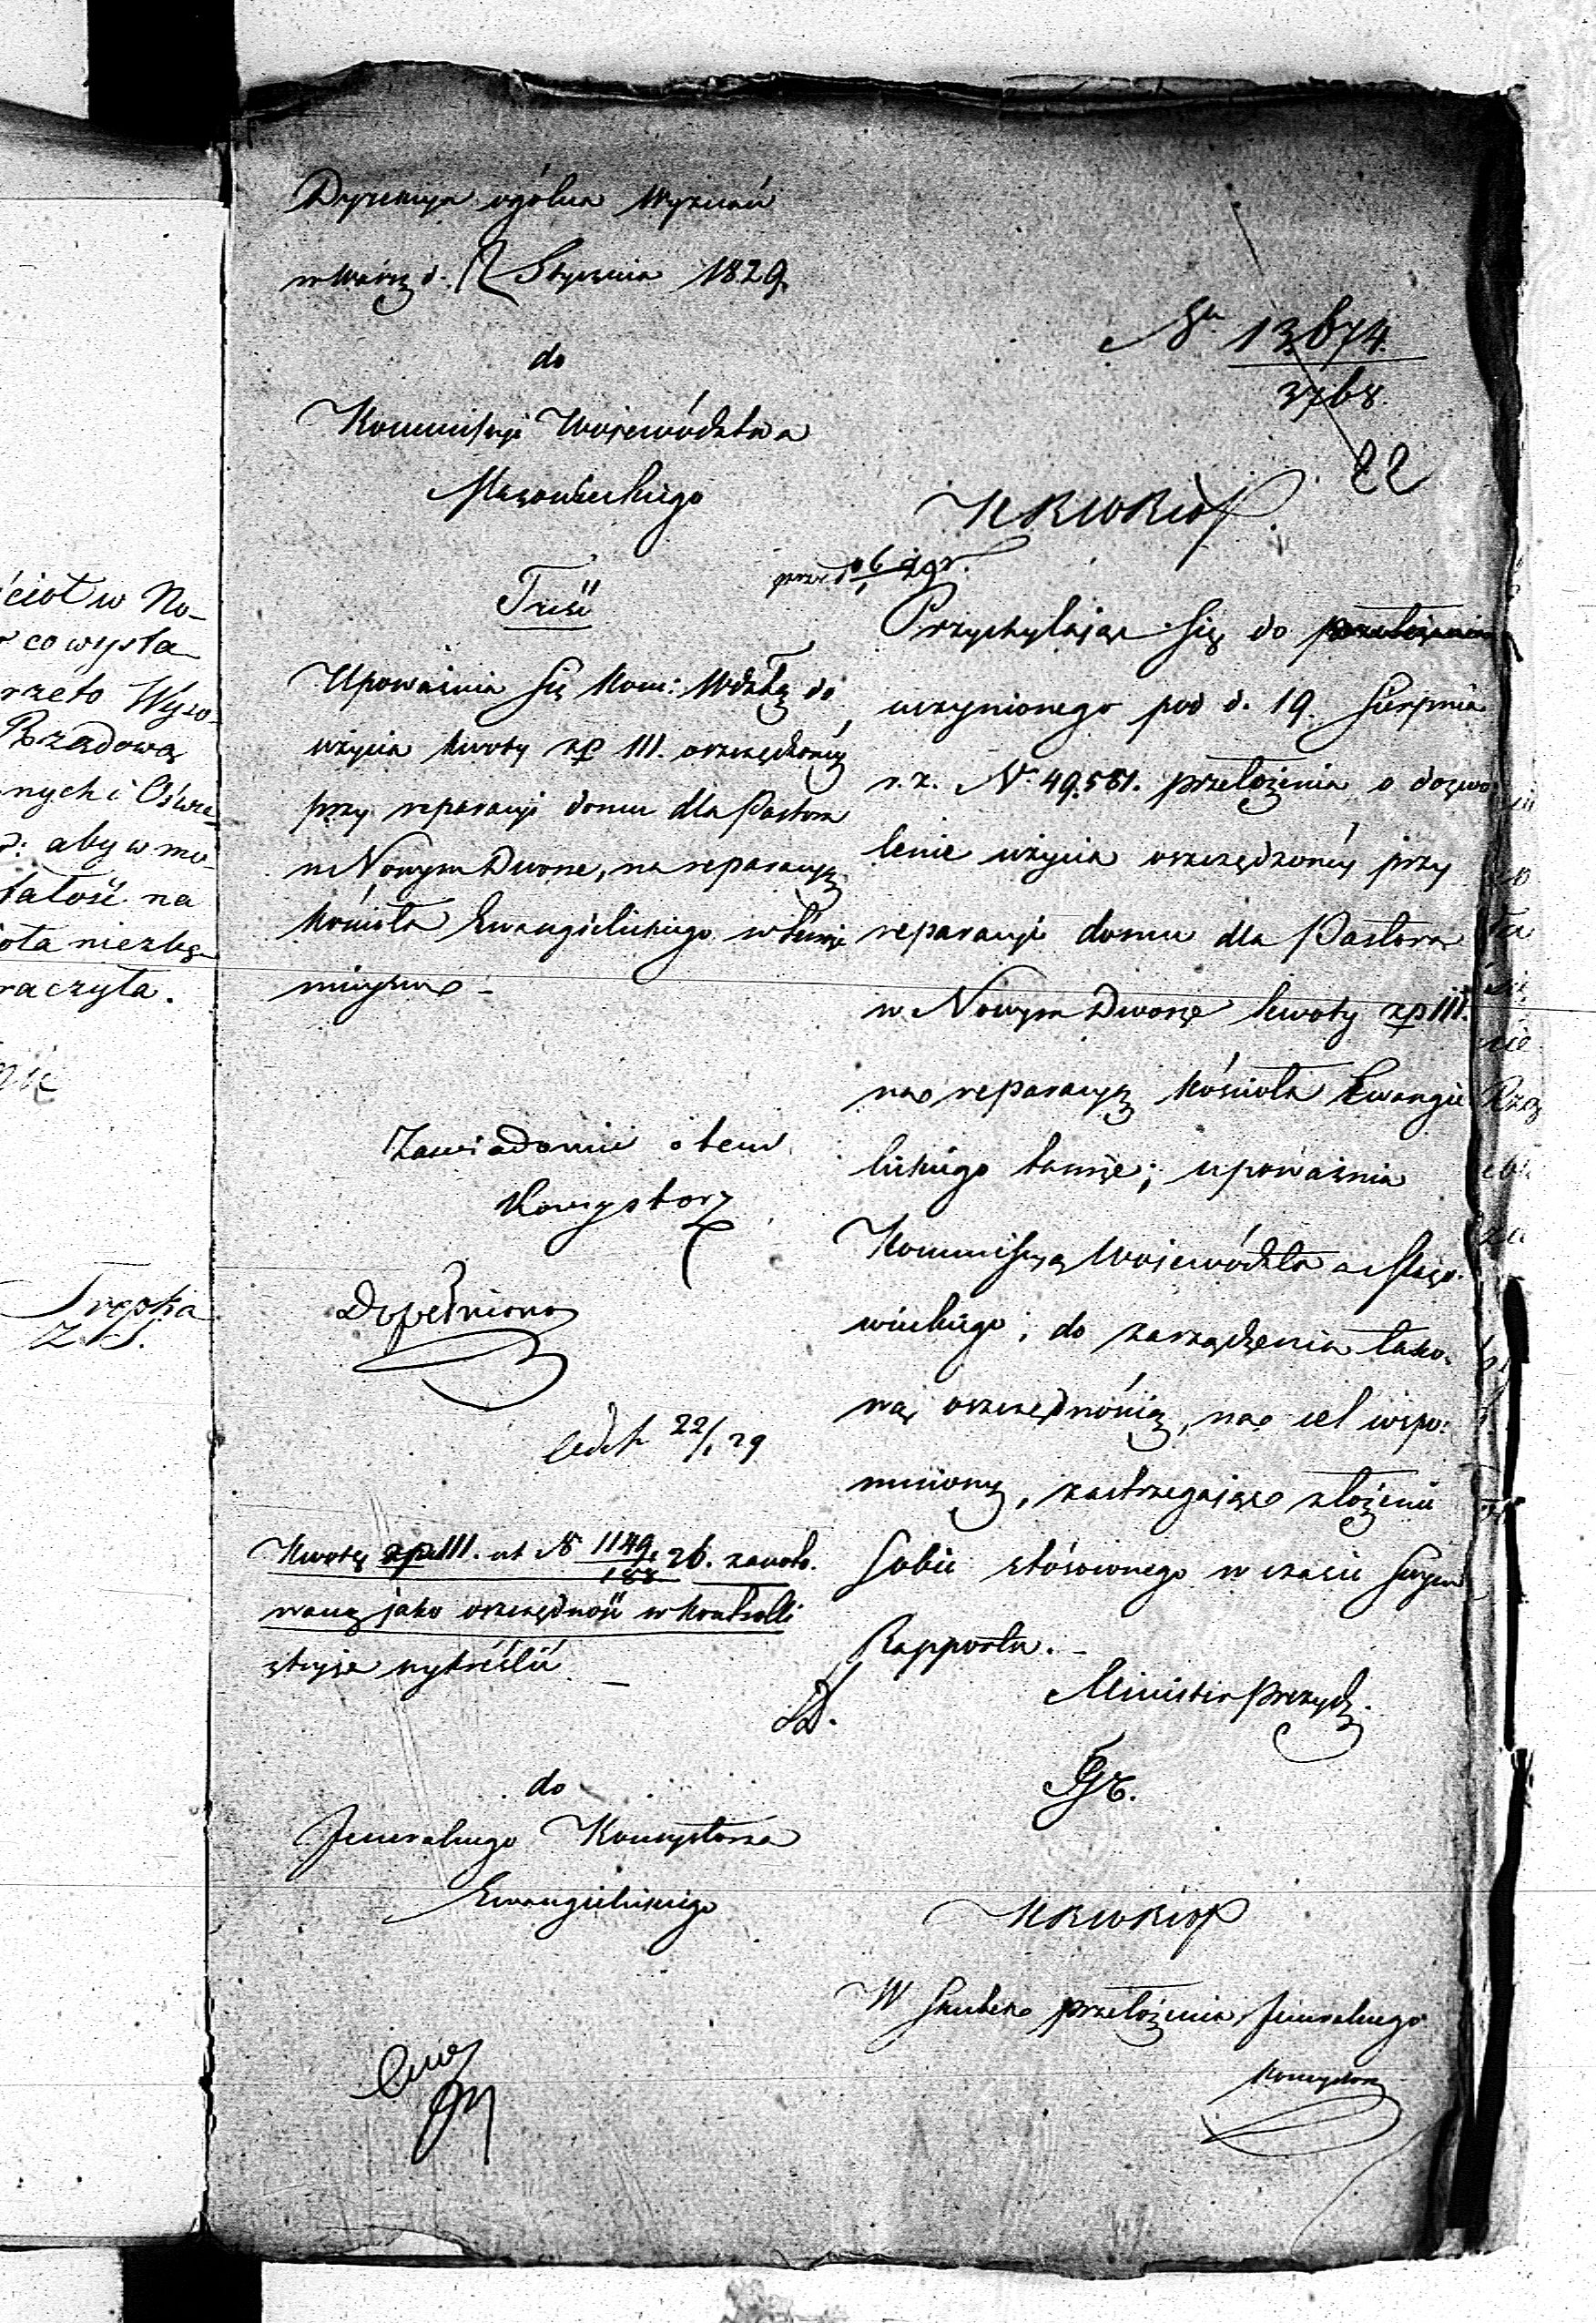 ściół w No-
co wysta
rzeto Wyso-
Rządową
nych i Oświe-
aby w mo
tałość na
oła niezbę-
raczyła.
Trepka
Z. S.
Dyrekcya ogólna Wyznań
w Warsz d. 12 Stycznia 1829
do
Kommissyi Województwa
Mazowieckiego
Treść
Upoważnia się Kom: Wdztką do
użycia kwoty zp 111. oszczędzonéy
przy reparacyi domu dla Pastora
w Nowym Dworze, na reparacyą
kościoła Ewangielickiego w témże
mieyscu -
Zawiadomić o tem
Konsystorz
Dopełniono
22/1 29
Kwotę zp 111. ut N 1149/188 26. zanoto-
waną jako oszczędność w Kontrolli
wykreślić
do
Jeneralnego Konsystorza
Ewangielickiego
No 13674.
3768.
22
KRWRiOP.
Przychylając się do
uczynionego pod d. 19 Sierpnia
r. z. No 49.581. przełożenia o dozwo
lenie użycia oszczędzonéy przy
reparacyi domu dla Pastora
w Nowym Dworze kwoty zp 111.
na reparacyą kościoła Ewangie
lickiego tamże; upoważnia
Kommissyą Województwa Mazo-
wieckiego, do zarządzenia tako-
wą oszczędnością, na cel wspo-
mniony, zastrzegając złożenie
sobie stósownego w czasie swym
Rapportu. -
Minister Prezyd.
Gr.
KRWRiOP
W skutek przełożenia Jeneralnego
Konsystorza